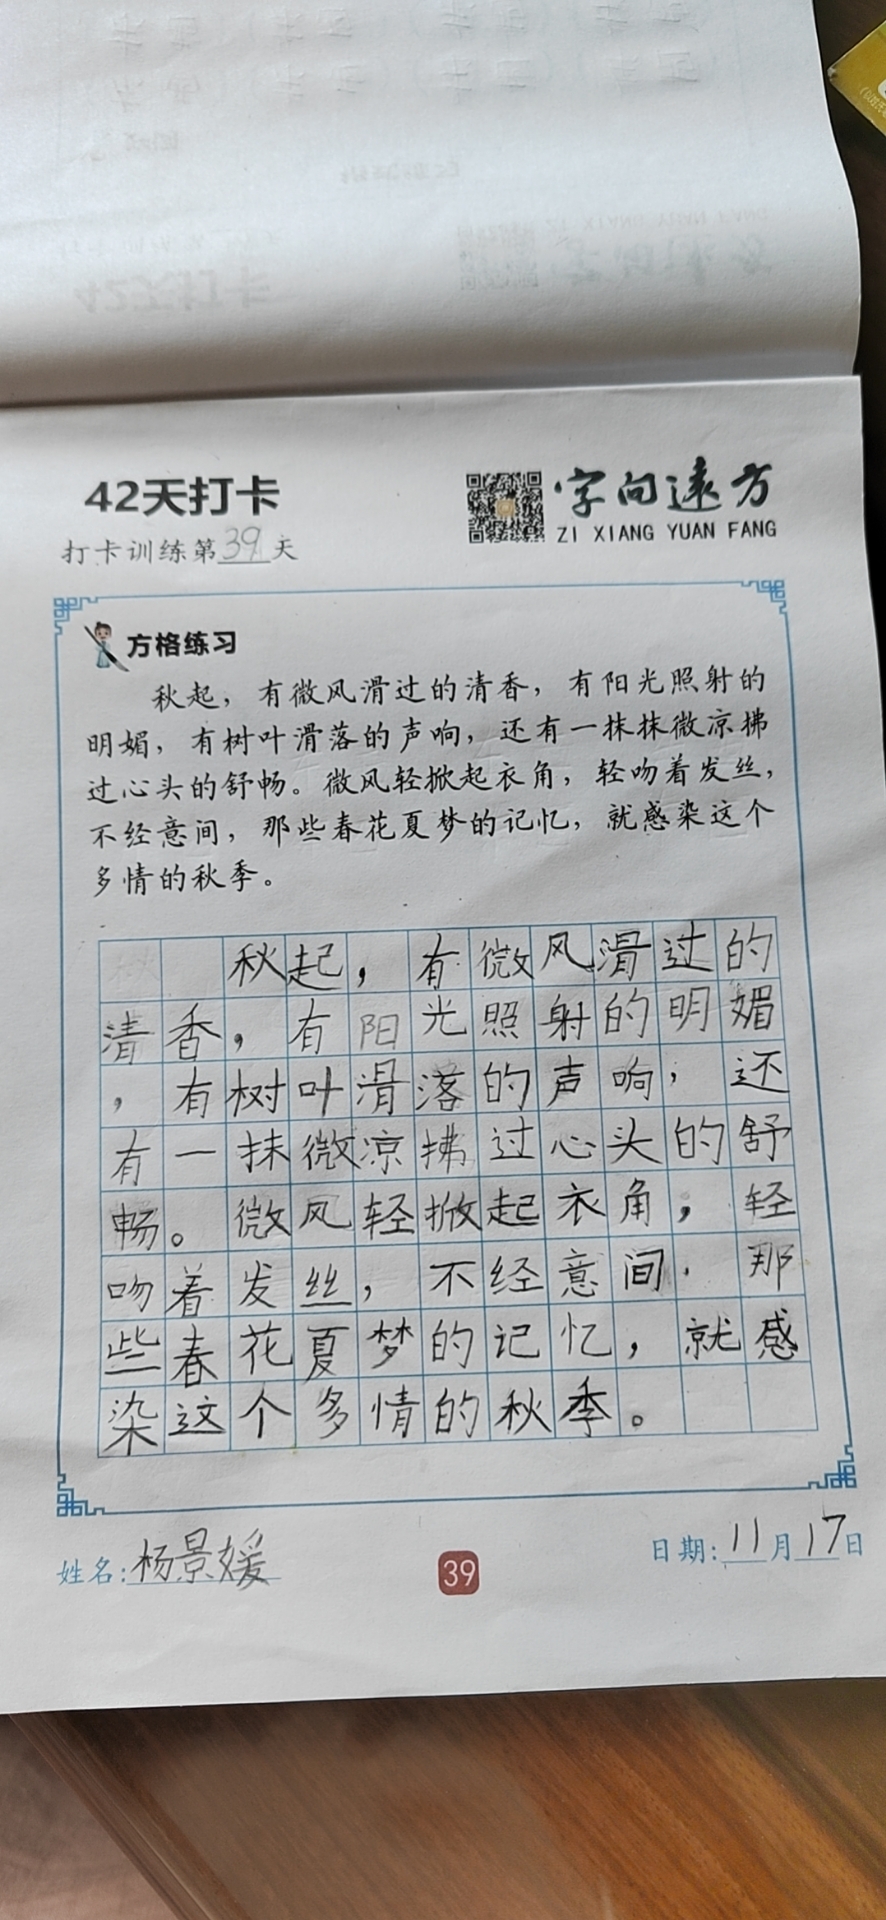 42天打卡
字向遠方
ZI XIANG YUAN FANG
打卡训练第39天
方格练习
秋起，有微风滑过的清香，有阳光照射的
明媚，有树叶滑落的声响，还有一抹抹微凉拂
过心头的舒畅。微风轻掀起衣角，轻吻着发丝，
不经意间，那些春花夏梦的记忆，就感染这个
多情的秋季。
秋起，有微风滑过的
清香，有阳光照射的明媚
，有树叶滑落的声响，还
有一抹微凉拂过心头的舒
畅。微风轻掀起衣角，轻
吻着发丝，不经意间，那
些春花夏梦的记忆，就感
染这个多情的秋季。
姓名:杨景媛
39
日期:11月17日